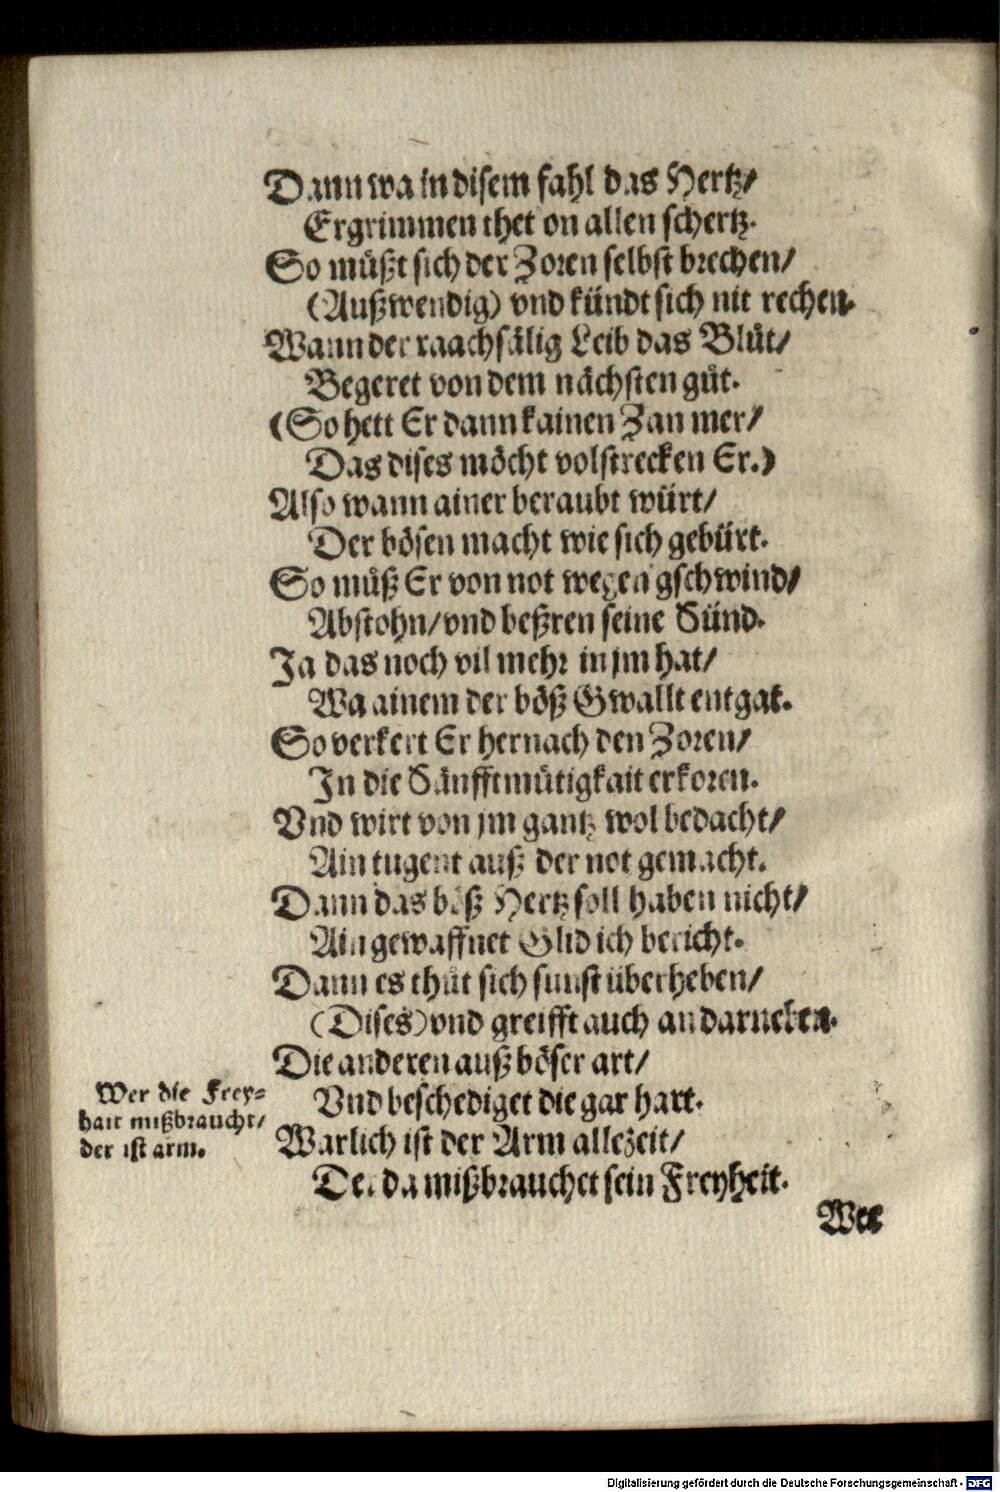 Dann wa in disem fahl das Hertz/
Ergrimmen thet on allen schertz.
So müßt sich der Zoren selbst brechen/
(Außwendig) vnd kündt sich nit rechen.
Wann der raachsälig Leib das Blůt/
Begeret von dem nächsten gůt.
(So hett Er dann kainen Zan mer/
Das dises möcht volstrecken Er.)
Also wann ainer beraubt würt/
Der bösen macht wie sich gebürt.
So můß Er von not wegen gschwind/
Abstohn/vnd beßren seine Sünd.
Ja das noch vil mehr in jm hat/
Wa ainem der böß Gwallt entgat.
So verkert Er hernach den Zoren/
In die Sänfftmütigkait erkoren.
Vnd wirt von jm gantz wol bedacht/
Ain tugent auß der not gemacht.
Dann das böß Hertz soll haben nicht/
Ain gewaffnet Glid ich bericht.
Dann es thůt sich sunst überheben/
(Dises) vnd greifft auch an darneben.
Die anderen auß böser art/
Wer die Frey=
hait mißbraucht/
der ist arm.
Vnd beschediget die gar hart.
Warlich ist der Arm allezeit/
Der da mißbrauchet sein Freyheit.
Wer
Digitalisierung gefördert durch die Deutsche Forschungsgemeinschaft - DFG